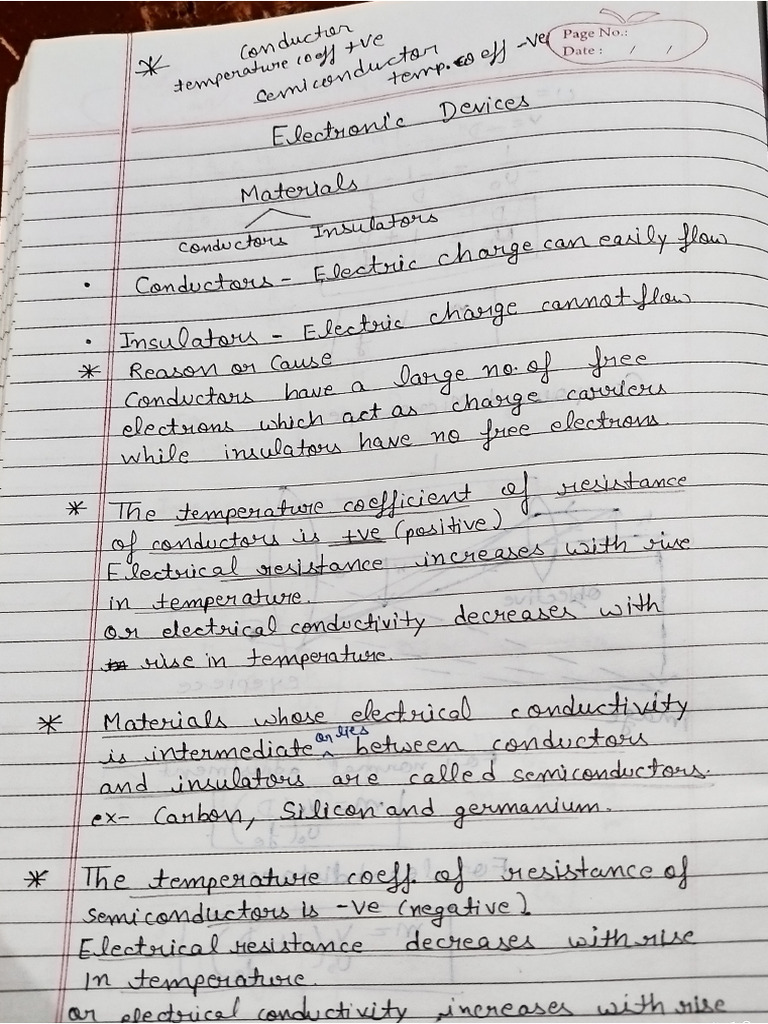 Page No.:
Date : / /
* Conductor
temperature coeff +ve
Semiconductor
temp. coeff -ve
Electronic Devices
Materials
Conductors Insulators
• Conductors - Electric charge can easily flow
• Insulators - Electric charge cannot flow
* Reason or Cause
Conductors have a large no. of free
electrons which act as charge carriers
while insulators have no free electrons.
* The temperature coefficient of resistance
of conductors is +ve (positive)
Electrical resistance increases with rise
in temperature.
or electrical conductivity decreases with
rise in temperature.
* Materials whose electrical conductivity
is intermediate or lies between conductors
and insulators are called semiconductors.
ex- Carbon, Silicon and germanium.
* The temperature coeff. of resistance of
semiconductors is -ve (negative)
Electrical resistance decreases with rise
In temperature.
or electrical conductivity increases with rise